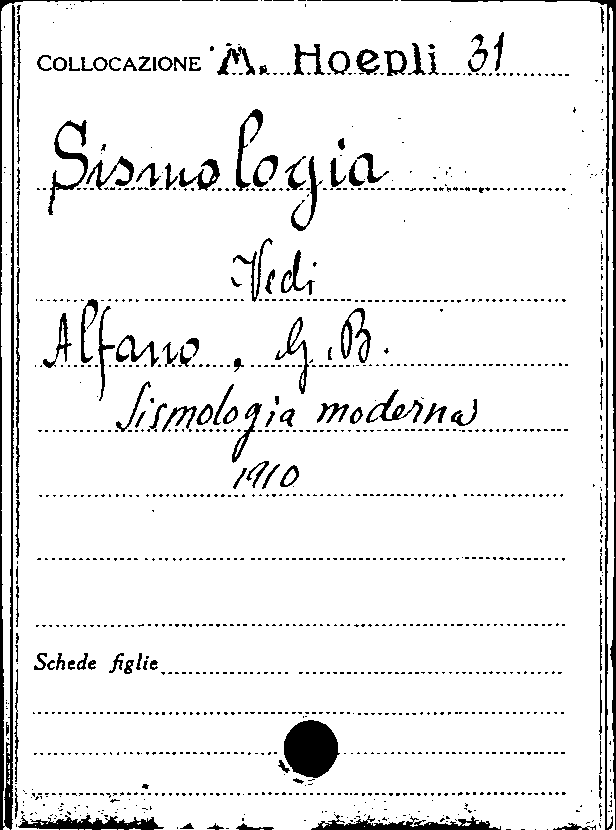 COLLOCAZIONE M. Hoepli 31
Sismologia
Vedi
Alfano, G.B.
Sismologia moderna
1910
Schede figlie